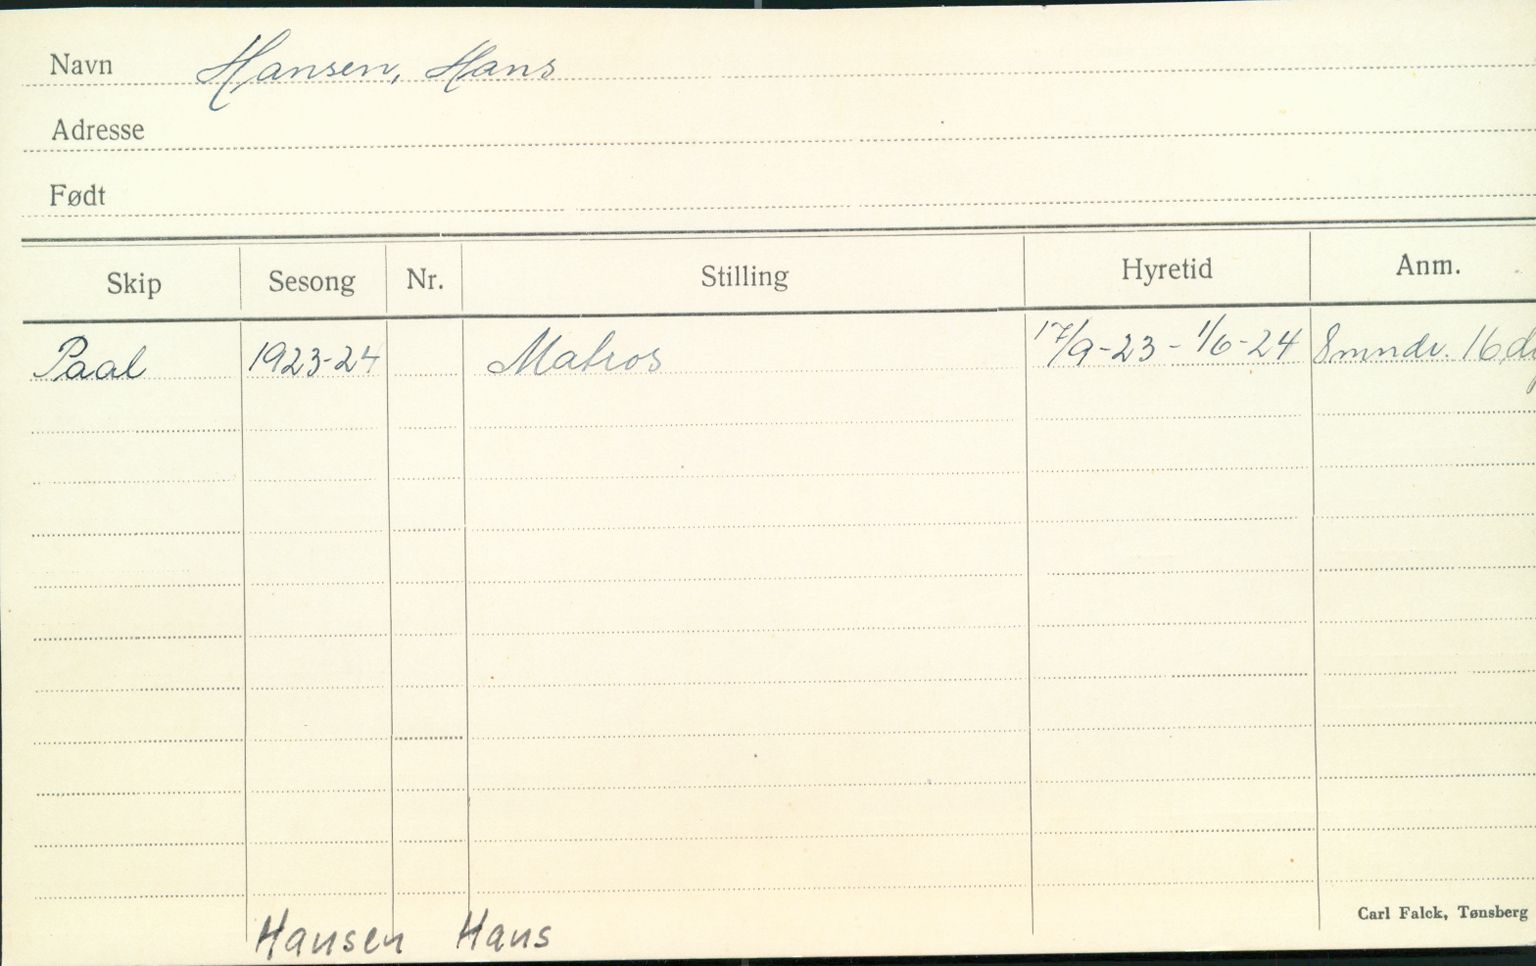 Navn Hansen, Hans
Adresse
Født
Skip Sesong Nr. Stilling Hyretid Anm.
Paal 1923-24 Matros 17/9-23 - 1/6-24 8 mndr. 16 d
Carl Falck, Tønsberg
Hansen Hans